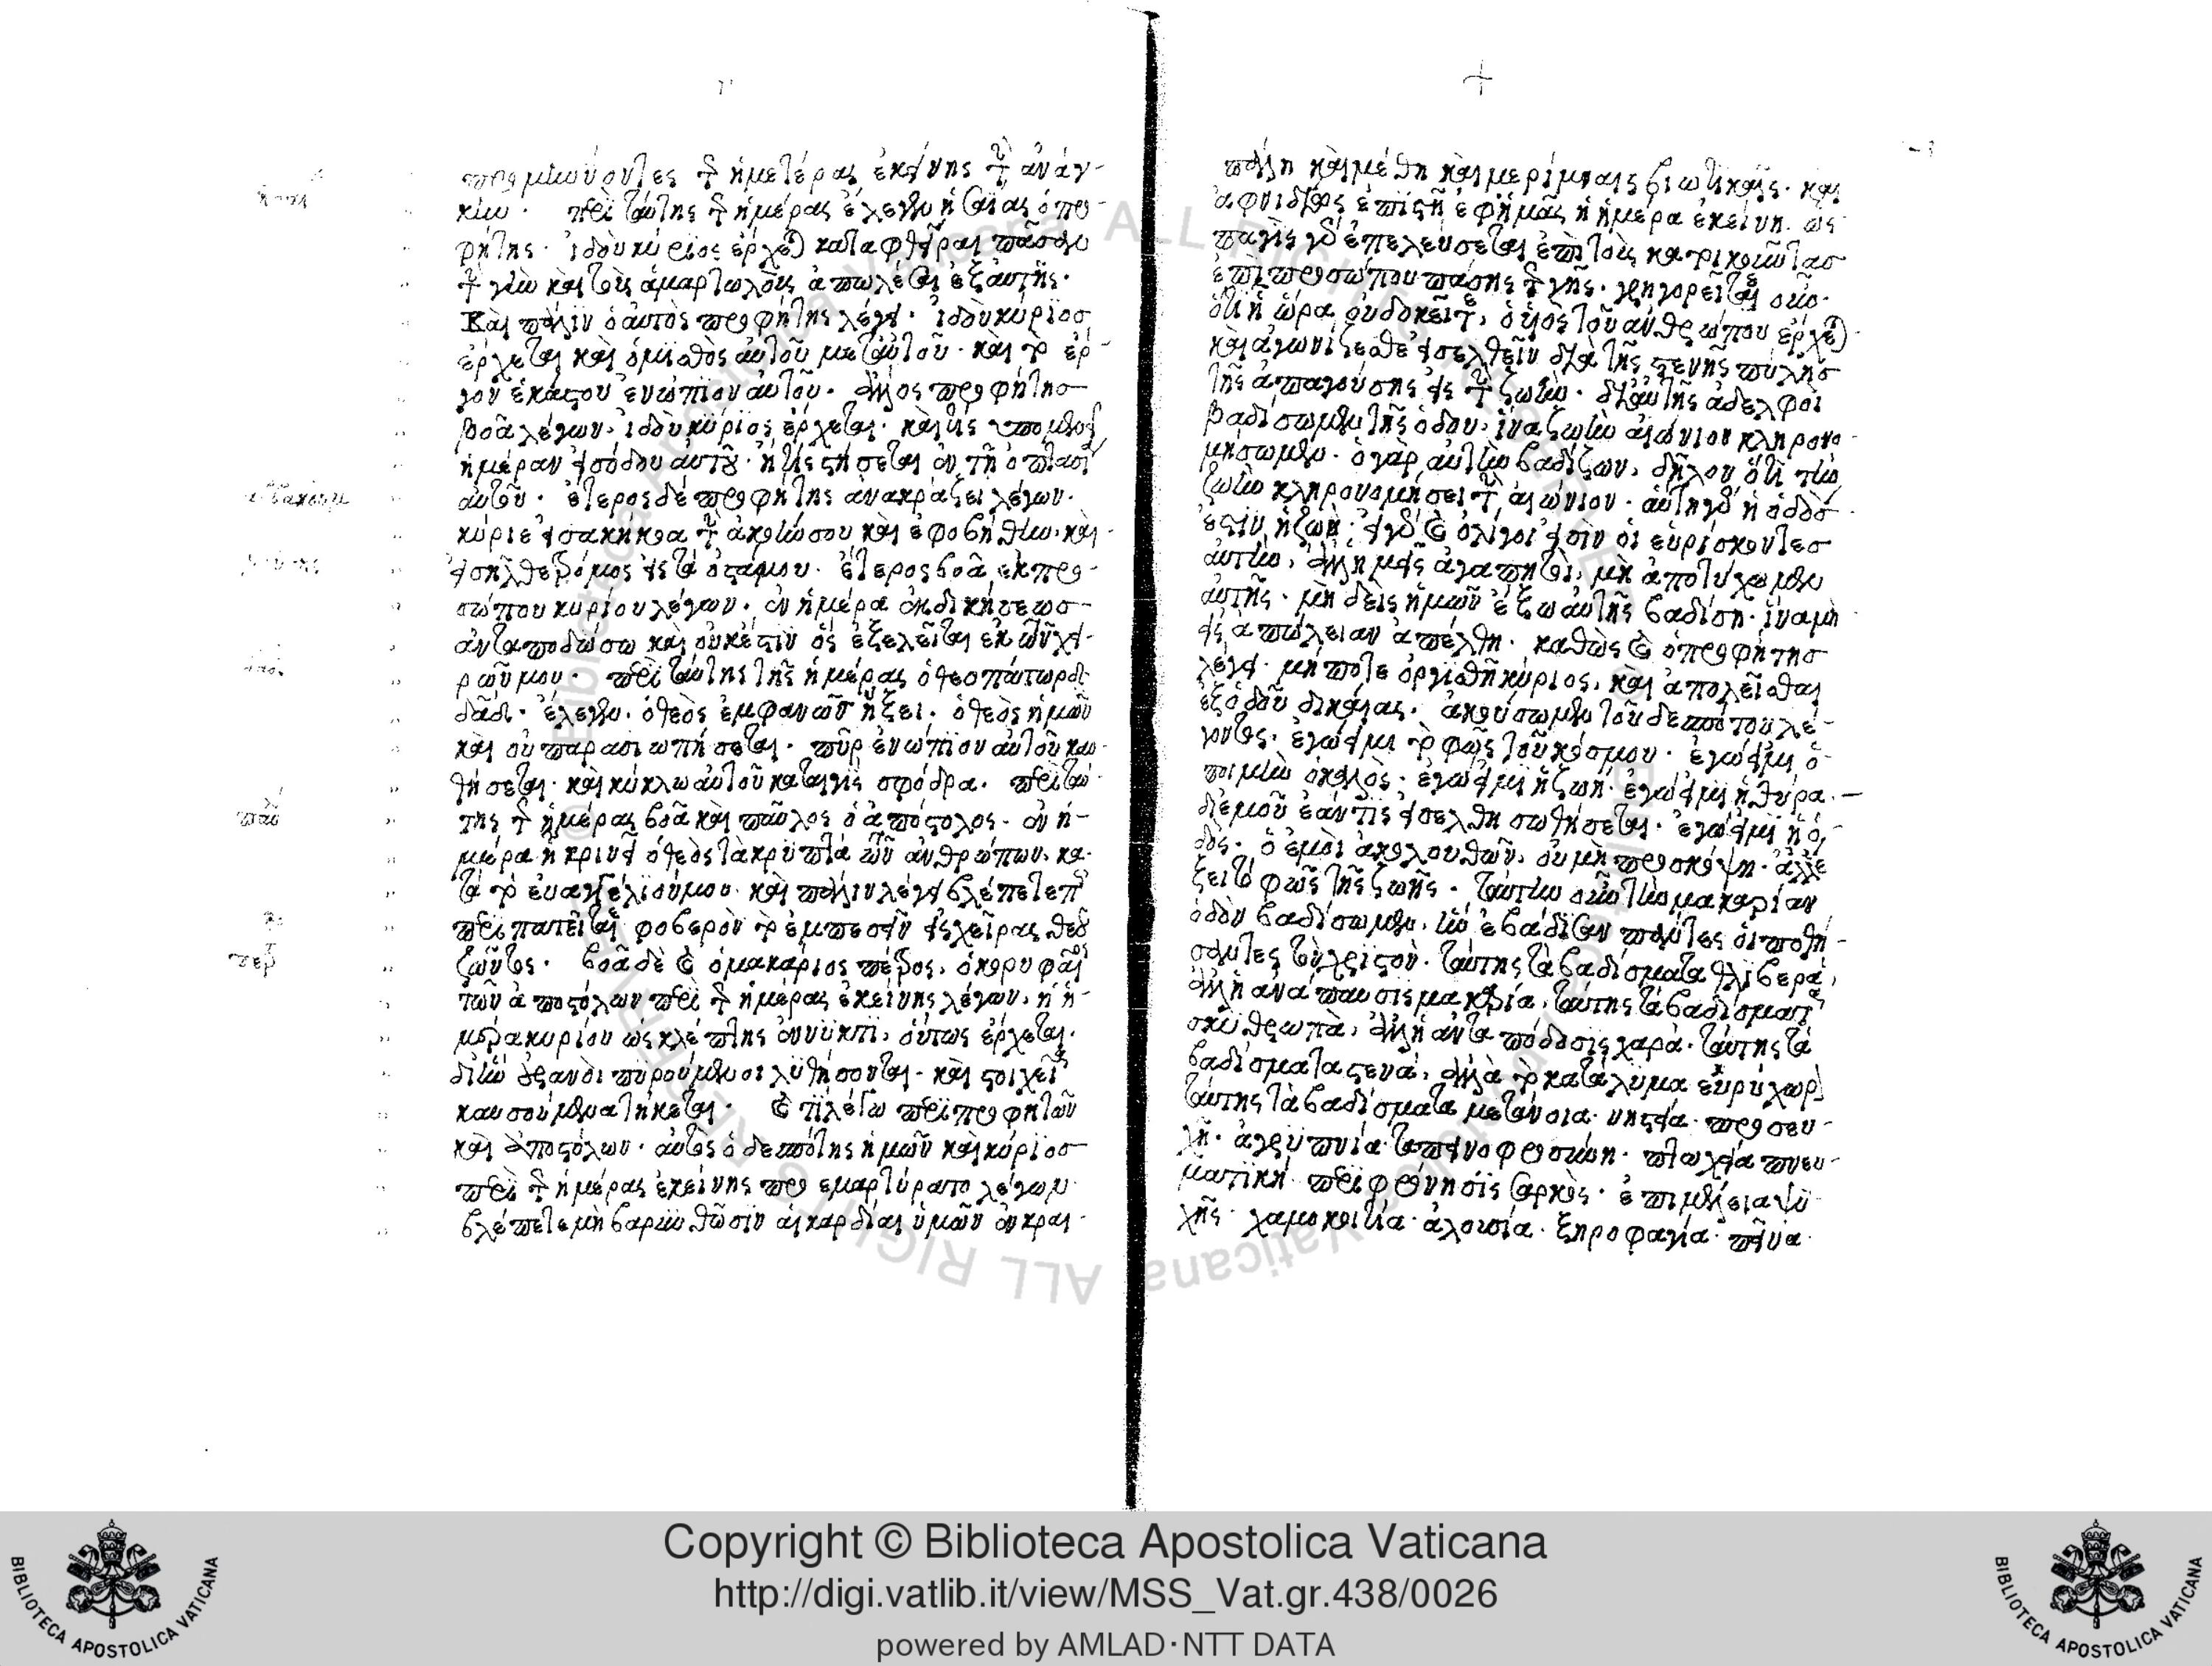 προμηνύοντες τ ἡμετέρας ἐκείνης τὴν ἀνάγ-
κην. περὶ ταύτης τ ἡμέρας ἔλεγεν ἡσαΐας ὁ προ-
φήτης. ἰδοὺ κύριος ἔρχεται καταφθεῖραι πᾶσαν
τ γῆν καὶ τοὺς ἁμαρτωλοὺς ἀπωλέσαι ἐξ αὐτῆς.
Καὶ πάλιν ὁ αυτὸς προφήτης λέγει. ἰδοὺ κύριος
ἔρχεται καὶ ὁ μισθὸς αὐτοῦ μετ αὐτοῦ. καὶ τὸ ἔρ-
γον ἑκάστου ἐνώπιον αὐτοῦ. ἄλλος προφήτησ
βοᾶ λέγων. ἰδοὺ κύριος ἔρχεται. καὶ τίς ὑπομενεῖ
ἡμέραν εἰσόδου αὐτοῦ. ἢ τίς στήσεται ἐν τῆ ὀπτασί
αὐτοῦ. ἕτερος δὲ προφήτης ἀνακράζει λέγων.
ἀββακούμ
κύριε εἰσακήκοα τὴν ἀκοήν σου καὶ ἐφοβήθην. καὶ
εἰσῆλθε τρόμος εἰς τὰ ὀστᾶ μου. ἕτερος βοᾶ ἐκ προ-
σώπου κυρίου λέγων. ἐν ἡμέρα ἐκδικήσεωσ
ἀνταποδώσω καὶ οὐκ ἔστιν ὃς ἐξελεῖται ἐκ τῶν χει-
ρῶν μου. περὶ ταύτης τῆς ἡμέρας ὁ θεοπάτωρ
δαδ. ἔλεγεν. ὁ θεὸς ἐμφανῶς ἥξει. ὁ θεὸς ἡμῶν
καὶ οὐ παρασιωπήσεται. πῦρ ἐνώπιον αὐτοῦ καυ-
θήσεται. καὶ κύκλω αὐτοῦ καταιγὶς σφόδρα. περὶ ταύ-
παῦ
της τ ἡμέρας βοᾶ καὶ παῦλος ὁ ἀπόστολος. ἐν ἡ-
μέρα ἢ κρινεῖ ὁ θεὸς τὰ κρυπτὰ τῶν ἀνθρώπων. κα-
τὰ τὸ ευαγγέλιόν μου. καὶ πάλιν λέγει βλέπετε π
περιπατεῖται φοβερὸν τὸ ἐμπεσεῖν εἰς χεῖρας θεοῦ
πετρ
ζῶντος. βοᾶ δὲ καὶ ὁ μακάριος πέτρος. ὁ κορυφαῖ
τῶν ἀποστόλων περὶ τ ἡμέρας ἐκείνης λέγων. ἡ ἡ-
μέρα κυρίου ὡς κλέπτης ἐν νυκτὶ, οὕτως ἔρχεται.
δι ἣν οὐρανοὶ πυρούμενοι λυθήσονται. καὶ στοιχεῖα
καυσούμενα τήκεται. καὶ τί λέγω περὶ προφητῶν
καὶ ἀποστόλων. αὐτὸς ὁ δεσπότης ἡμῶν καὶ κύριοσ
περὶ τ ἡμέρας ἐκείνης προεμαρτύρατο λέγων.
βλέπετε μὴ βαρυνθῶσιν αἱ καρδίαι ὑμῶν ἐν κραι-
πάλη καὶ μέθη καὶ μερίμναις βιωτικαῖς. καὶ
ἀφνιδίως ἐπιστῆ ἐφ ἡμᾶς ἡ ἡμέρα ἐκείνη. ὡς
παγὶς γὰρ ἐπελεύσεται ἐπὶ τοὺς κατοικοῦντασ
ἐπὶ προσώπου πάσης τ γῆς. γρηγορεῖται οὖν.
ὅτι ἡ ὥρα οὐ δοκεῖτε, ὁ υἱὸς τοῦ ἀνθρώπου ἔρχεται
καὶ ἀγωνίζεσθε εἰσελθεῖν διὰ τῆς στενῆς πύλησ
τῆς ἀπαγούσης εἰς τὴν ζωήν. δι αὐτῆς ἀδελφοὶ
βαδίσωμεν τῆς ὁδοῦ. ἵνα ζωὴν αἰώνιον κληρονο-
μήσωμεν. ὁ γὰρ αὐτὴν βαδίζων, δῆλον ὅτι τὴν
ζωὴν κληρονομήσει τὴν αἰώνιον. αὕτη γὰρ ἡ ὁδὸσ
ἐστὶν ἡ ζωὴ. εἰ γὰρ καὶ ὀλίγοι εἰσὶν οἱ εὑρίσκοντεσ
αὐτήν, ἀλλ ἡμεῖς ἀγαπητοὶ, μὴ ἀποτύχωμεν
αὐτῆς. μὴ δεὶς ἡμῶν ἔξω αὐτῆς βαδίση. ἵνα μὴ
εἰς ἀπώλειαν ἀπέλθη. καθὼς καὶ ὁ προφήτησ
λέγει. μήποτε ὀργισθῆ κύριος, καὶ ἀπολεῖσθαι
ἐξ ὁδοῦ δικαίας. ἀκούσωμεν τοῦ δεσπότου λέ-
γοντος. ἐγώ εἰμι τὸ φῶς τοῦ κόσμου. ἐγώ εἰμι ὁ
ποιμὴν ὁ καλὸς. ἐγώ εἰμι ἡ ζωὴ. ἐγώ εἰμι ἡ θύρα.
δι ἐμοῦ ἐάν τις εἰσέλθη σωθήσεται. ἐγώ εἰμι ἡ ὁ-
δὸς. ὁ ἐμοὶ ἀκολουθῶν, οὐ μὴ προσκόψη. ἀλλ ἕ-
ξει τὸ φῶς τῆς ζωῆς. ταύτην οὖν τὴν μακαρίαν
ὁδὸν βαδίσωμεν, ἣν ἐβάδισαν πάντες οἱ ποθή-
σαντες τὸν χριστὸν. ταύτης τὰ βαδίσματα θλιβερά,
ἀλλ ἡ ἀνάπαυσις μακαρία. ταύτης τὰ βαδίσματα
σκυθρωπὰ, ἀλλ ἡ ἀνταπόδοσις χαρὰ. ταύτης τὰ
βαδίσματα στενά, ἀλλὰ τὸ κατάλυμα εὐρύχωρ
ταύτης τὰ βαδίσματα μετάνοια. νηστεία. προσευ-
χὴ. ἀγρυπνία. ταπεινοφροσύνη. πτωχεία πνευ-
ματική. περιφρόνησις σαρκὸς. ἐπιμέλεια ψυ-
χῆς. χαμοκοιτία. ἀλουσία. ξηροφαγία. πεῖνα.
Copyright © Biblioteca Apostolica Vaticana
http://digi.vatlib.it/view/MSS_Vat.gr.438/0026
powered by AMLAD·NTT DATA
BIBLIOTECA APOSTOLICA VATICANA
BIBLIOTECA APOSTOLICA VATICANA